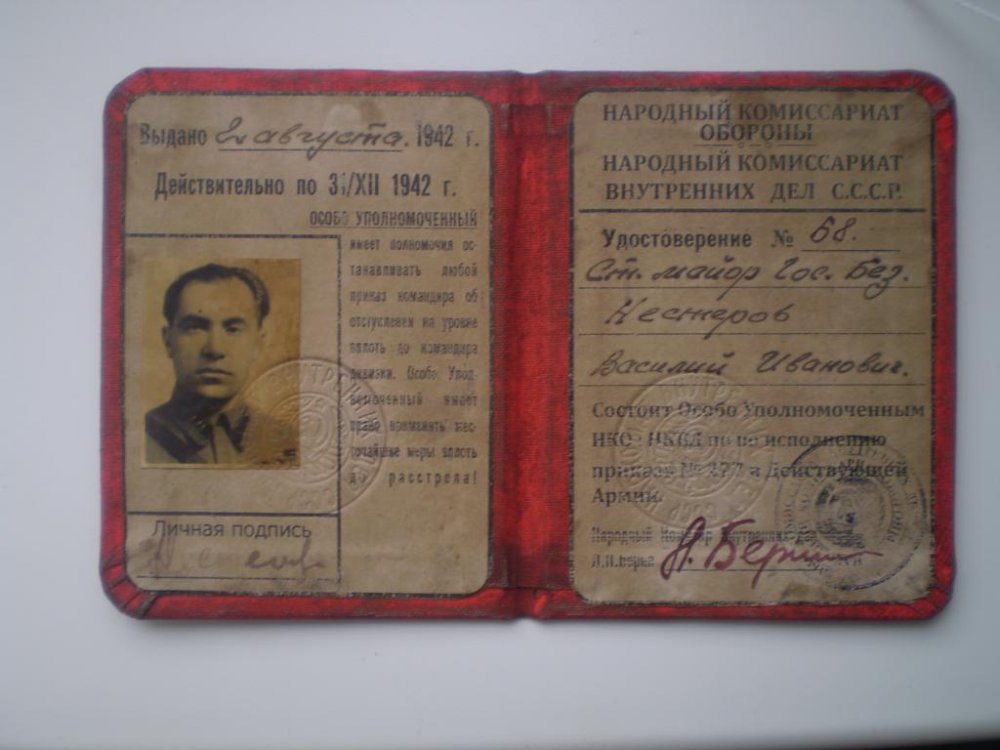 Выдано 2 августа. 1942 г.
Действительно по 31/XII 1942 г.
ОСОБО УПОЛНОМОЧЕННЫЙ
имеет полномочия ос-
танавливать любой
приказ командира об
отступлении на уровне
вплоть до командира
дивизии. Особо Упол-
номоченный имеет
право применять жес-
точайшие меры вплоть
до расстрела!
Личная подпись
НАРОДНЫЙ КОМИССАРИАТ
ОБОРОНЫ
НАРОДНЫЙ КОМИССАРИАТ
ВНУТРЕННИХ ДЕЛ С.С.С.Р.
Удостоверение № 68.
Ст. майор Гос. Без.
Нестеров
Василий Иванович.
Состоит Особо Уполномоченным
НКО - НКВД по по исполнению
приказа № 227 в Действующей
Армии.
Народный Комиссар Внутренних дел
Л.П.Берия
Л. Берия